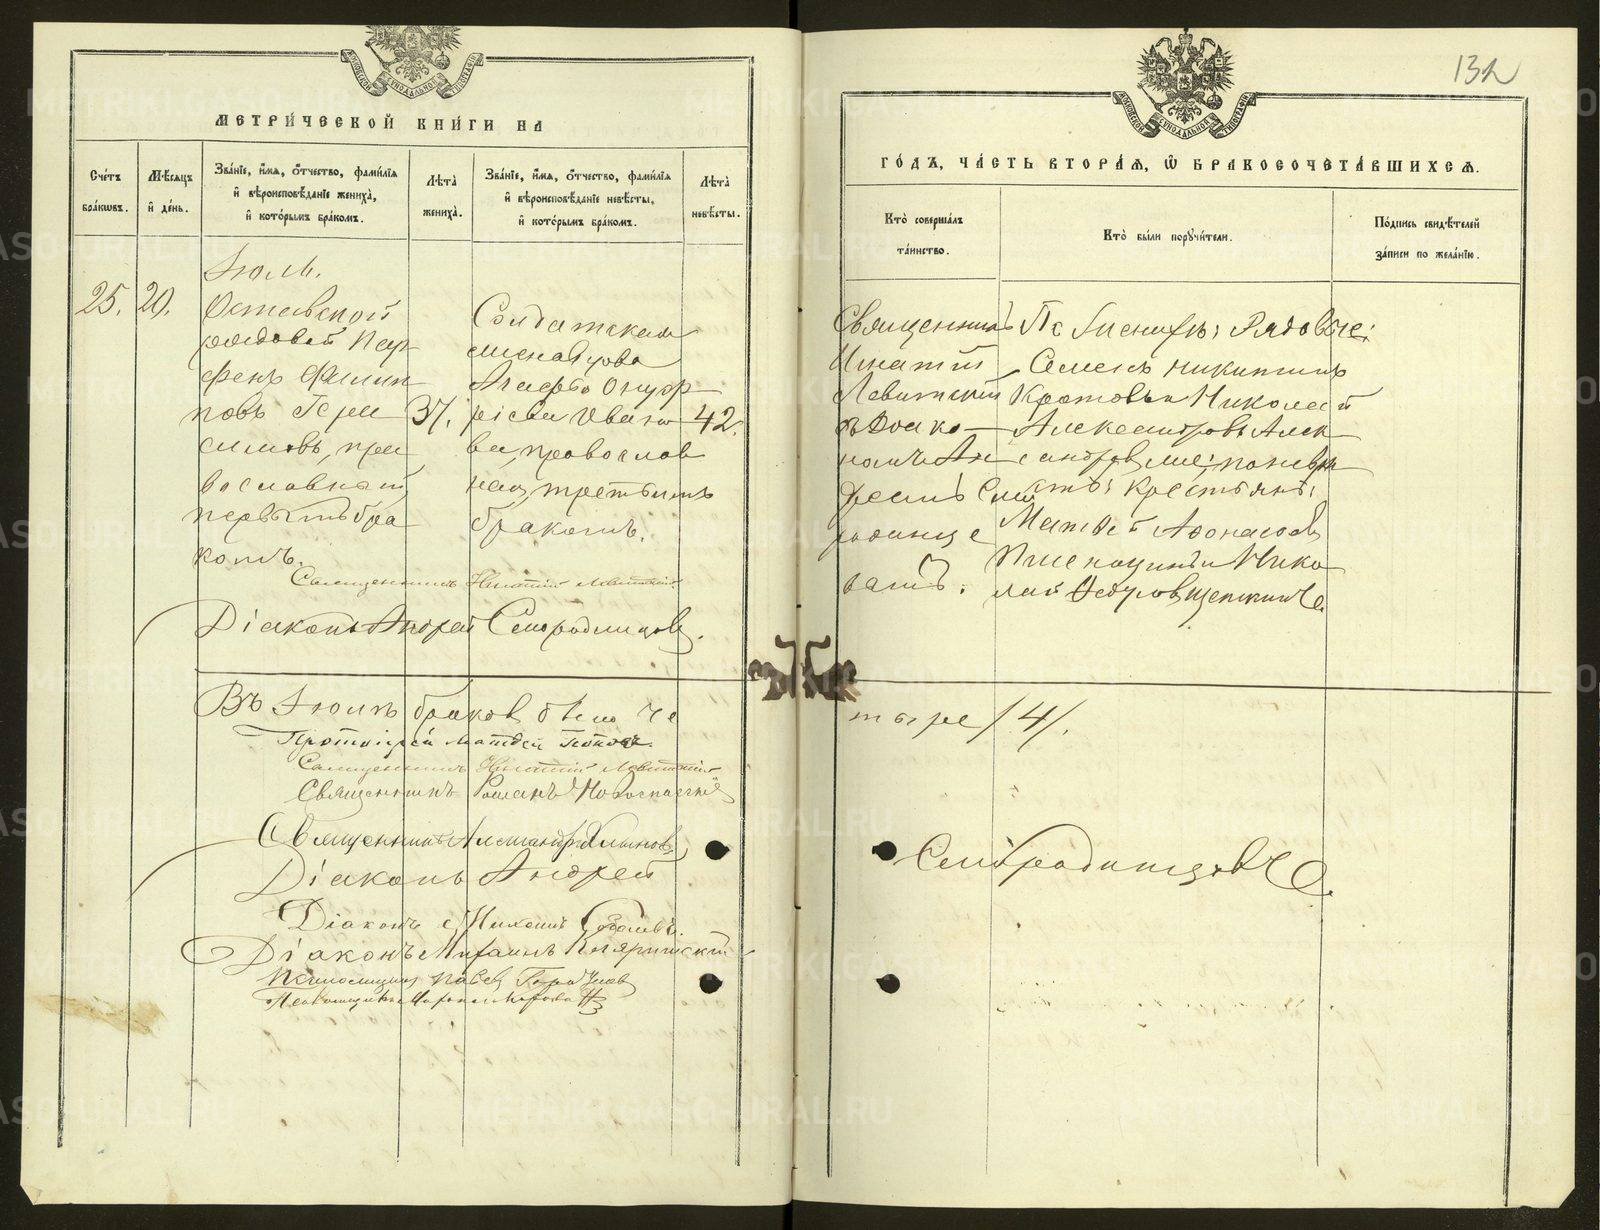 МЕТРИ́ЧЕСКОЙ КНИ́ГИ НА
Сче́тъ бра́кωвъ.
Мѣ́сяцъ и҆ де́нь.
Зва́нїе, и҆́мя, ѻ҆́тчество, фами́лїя и҆ вѣроисповѣ́данїе жениха̀, и҆ кото́рымъ бра́комъ.
Лѣ́та жениха̀.
Зва́нїе, и҆́мя, ѻ҆́тчество, фами́лїя и҆ вѣроисповѣ́данїе невѣ́сты, и҆ кото́рымъ бра́комъ.
Лѣ́та невѣ́сты.
Іюль.
25.
20.
Отставной
рядовой Пар
фенъ Филип
повъ Гера
симовъ, пра
вославный
первымъ бра
комъ.
37.
Солдатская
жена вдова
Агафья Онуф
ріева Ивано
ва, православ
ная, третьимъ
бракомъ.
42.
Священникъ Игнатій Левитскій
Діаконъ Андрей Смородинцовъ.
Въ Іюлѣ браковъ было че
Протоіерей Матѳей
Священникъ Игнатій Левитскій
Священникъ Романъ Новоспасскій
Священникъ Александръ
Діаконъ Андрей
Діаконъ
Діаконъ Михаилъ
Псаломщикъ Павелъ
Псаломщикъ
132
ГО́ДЪ, ЧА́СТЬ ВТОРА́Я, Ѡ҆ БРАКОСОЧЕТА́ВШИХСЯ.
Кто̀ соверша́лъ та́инство.
Кто̀ бы́ли порꙋчи́тели.
По́дпись свидѣ́телей за́писи по жела́нїю.
Священникъ
Игнатій
Левитскій
съ Діако
номъ Ан
дреемъ Смо
родинцо
вымъ.
По женихѣ: Рядовые:
Семенъ Никитинъ
Кротовъ и Николай
Александровъ Алек
сандровъ; по невѣ
стѣ: крестьяне:
Матвѣй Афонасьевъ
и Нико
лай Ѳедоровъ
тыре /4/.
Смородинцовъ